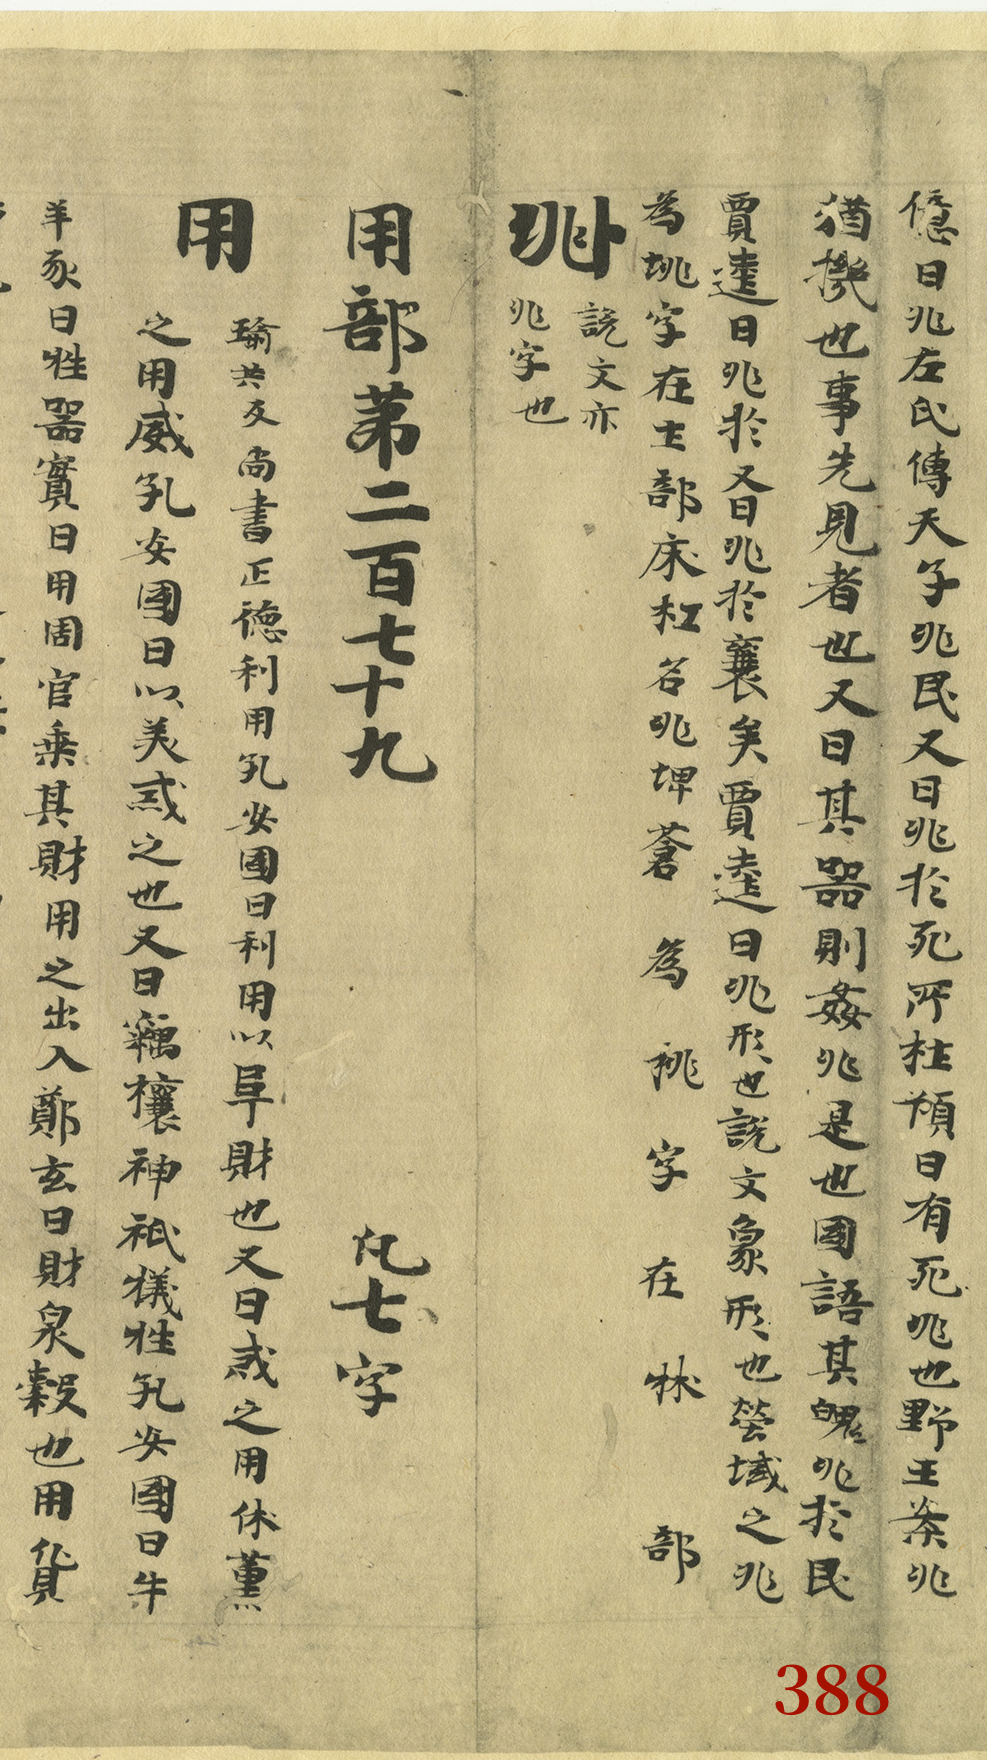 億曰兆左氏傳天子兆民又曰兆於死所杜預曰有死兆也野王案兆
猶機也事先見者也又曰其器則姦兆是也國語其魄兆於民
賈逵曰兆於又曰兆於襄矣賈逵曰兆形也說文象形也塋域之兆
為垗字在土部床杠名兆埤蒼為祧字在牀部
𠧞
說文亦
兆字也
用部第二百七十九 凡七字
用
瑜共反尚書正德利用孔安國曰利用以阜財也又曰戒之用休董
之用威孔安國曰以美戒之也又曰竊攘神祇犧牲孔安國曰牛
羊豕曰牲器實曰用周官乗其財用之出入鄭玄曰財泉穀也用貨
388